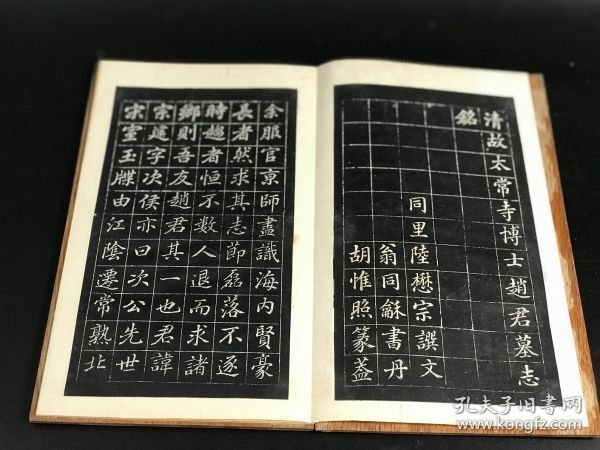 清故太常寺博士趙君墓志
銘
同里陸懋宗譔文
翁同龢書丹
胡惟照篆葢
余服官京師盡識海内賢豪
長者然求其志節磊落不逐
時趨者恒不數人退而求諸
鄉則吾友趙君其一也君諱
宗建字次侯亦曰次公先世
宋室玉牒由江陰遷常熟北
孔夫子旧书网
www.kongfz.com